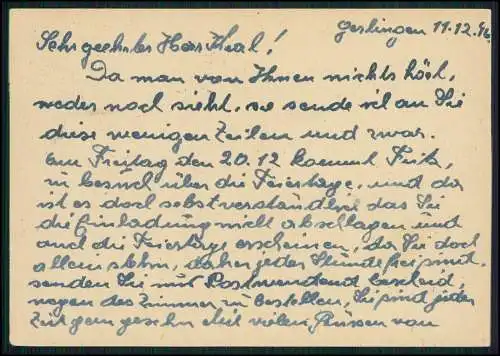 Geslingen 11.12.46.
Sehr geehrter Herr Thal!
Da man von Ihnen nichts hört,
weder noch sieht, so sende ich an Sie
diese wenigen Zeilen und zwar.
am Freitag den 20.12 kommt Fritz,
zu besuch über die Feiertage, und da
ist es doch selbstverständlich das Sie
die Einladung nicht abschlagen und
auch die Feiertage erscheinen, da Sie doch
allein stehn, daher jeder Stunde frei sind.
senden Sie mir Postwendend bescheid,
wegen des Zimmer zu bestellen, Sie sind jeder
Zeit gern gesehn Mit vielen Grüssen von